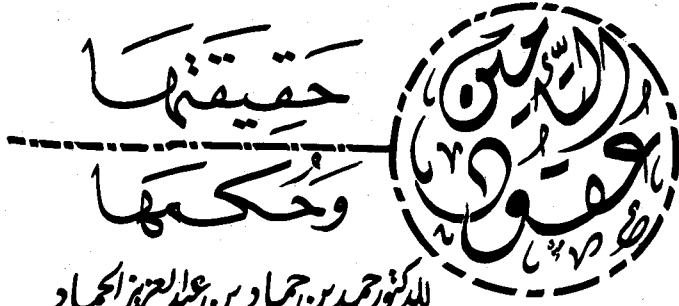 عقود التأمين
حَقِيقَتهَا
وَحُكمهَا
للدكتور حمد بن حماد بن عبد العزيز الحماد